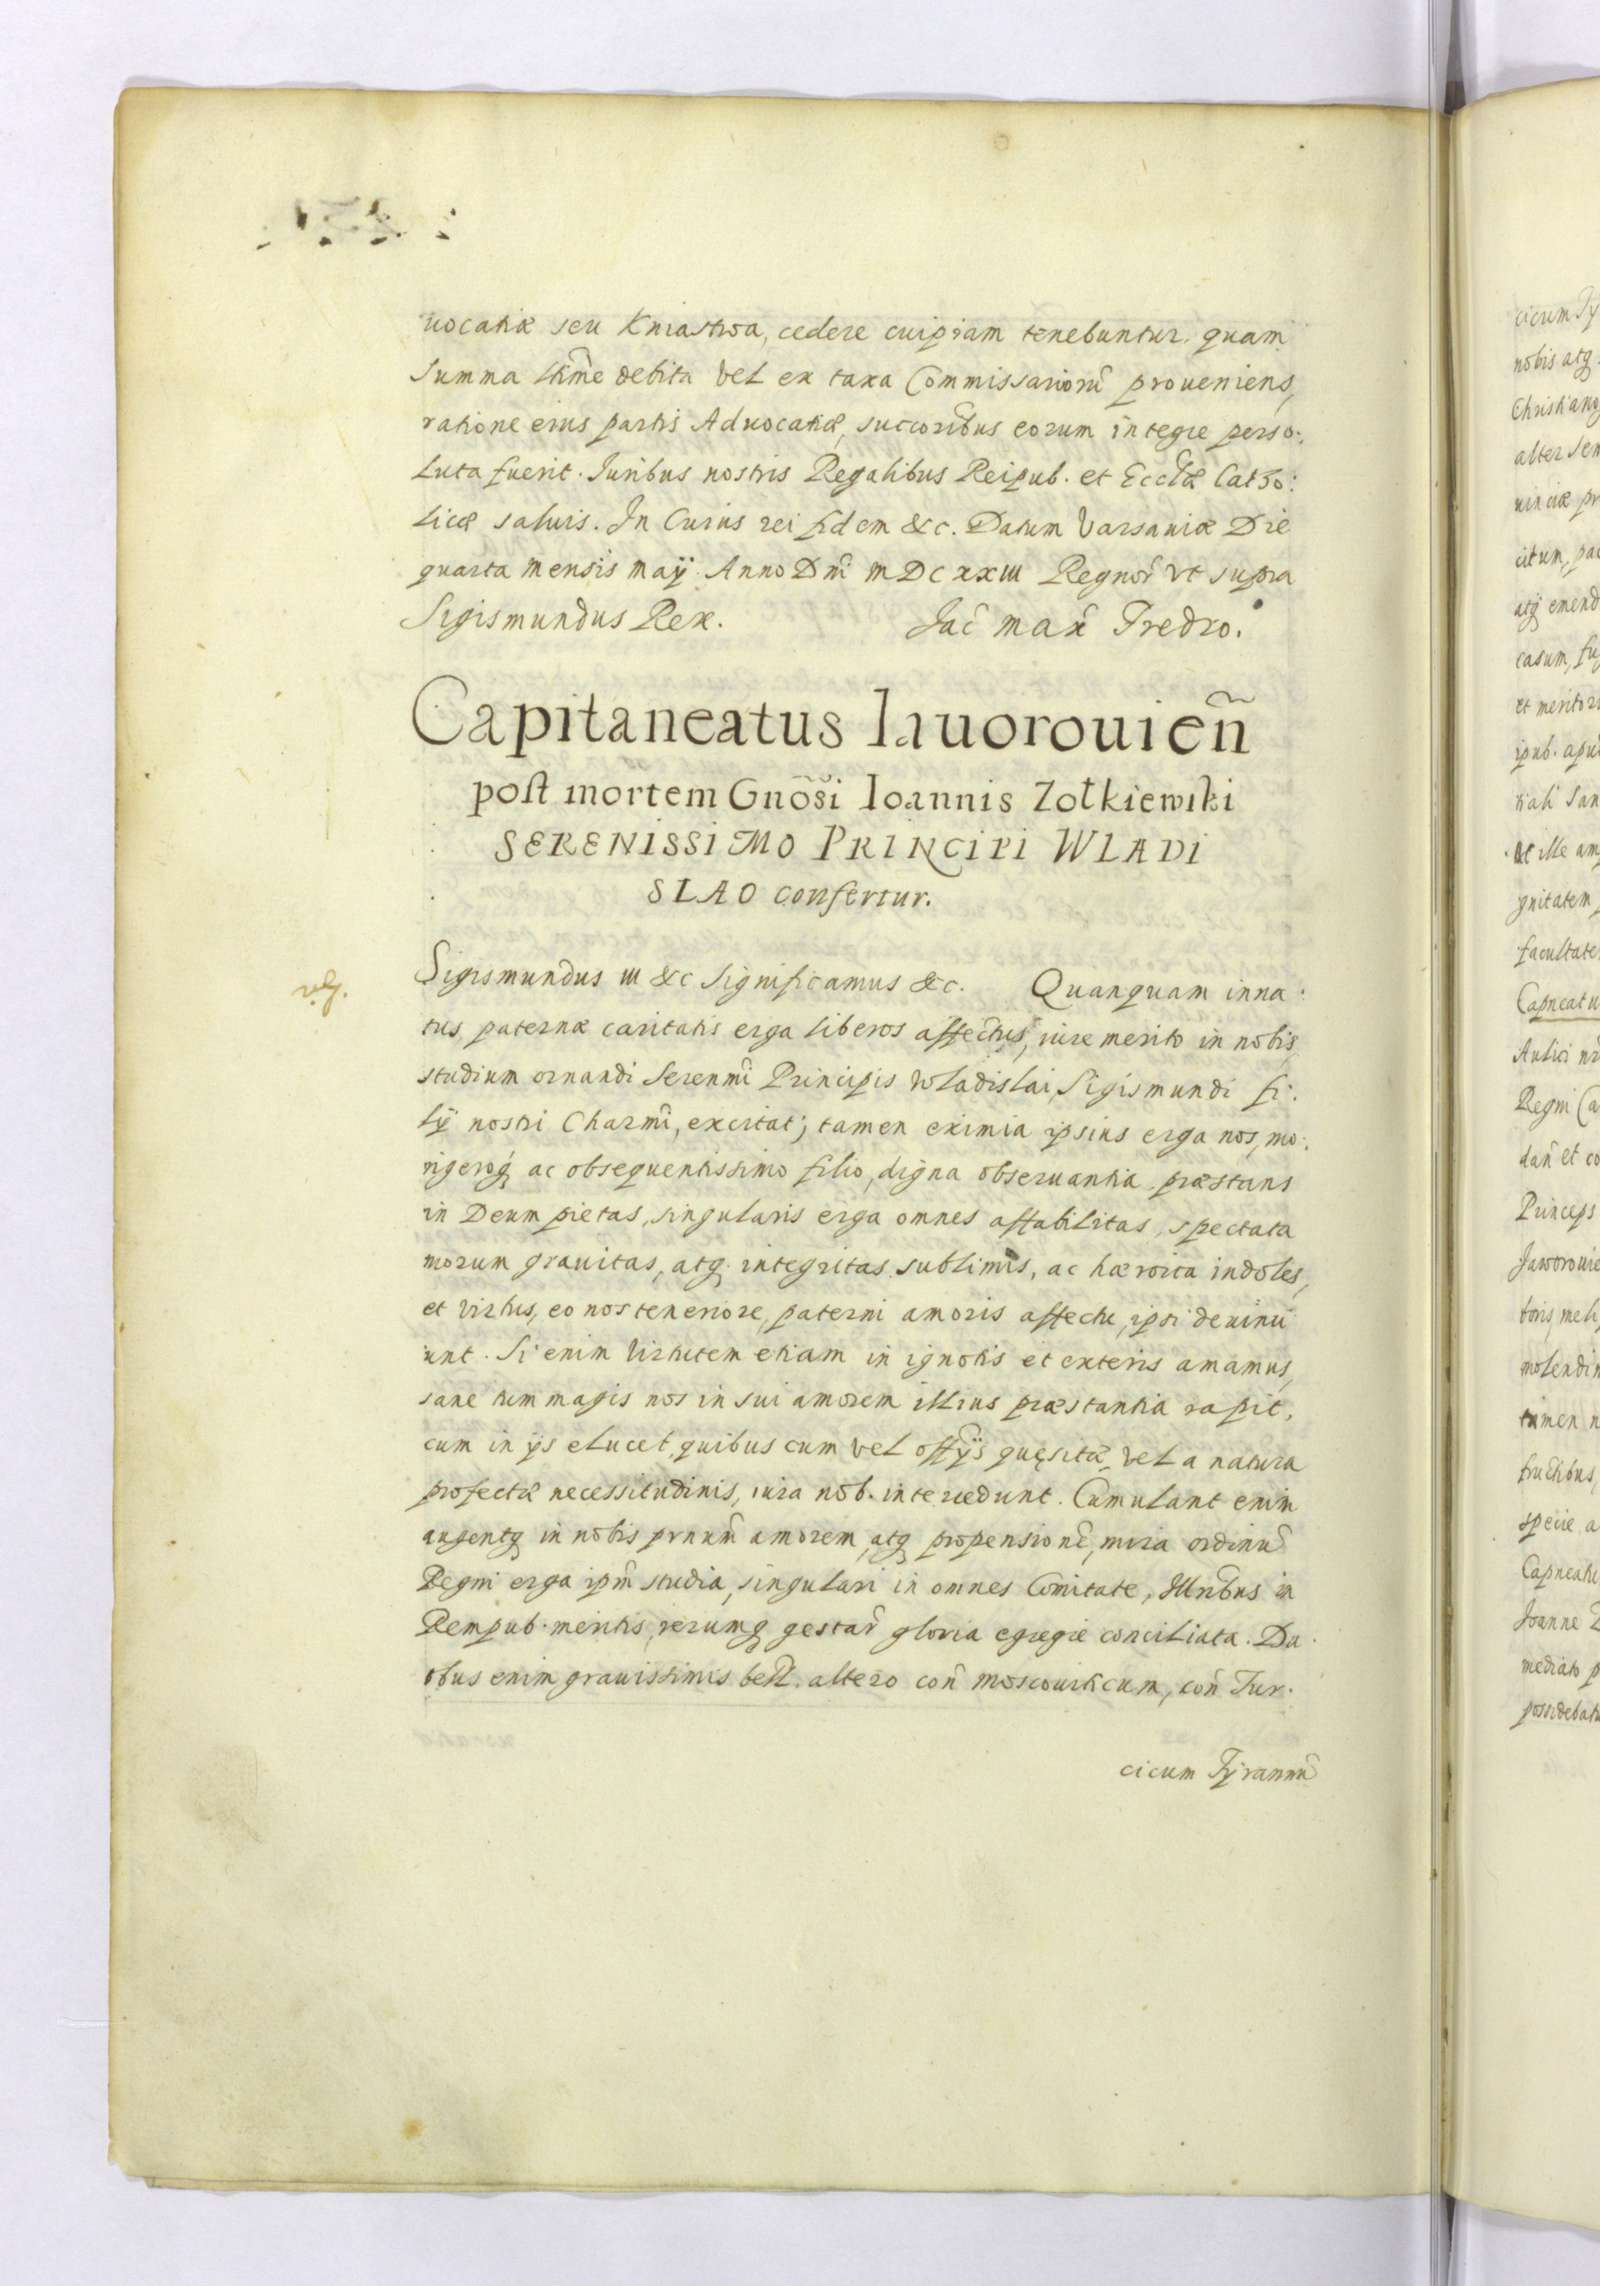 uocatiæ seu Kniastwa, cedere cuipiam tenebuntur. quam
summa ltime debita vel ex taxa Commissariorũ proueniens,
ratione eius partis Aduocatiæ, succoribus eorum integre perso:
luta fuerit. Juribus nostris Regalibus Reipub. et Ecclæ Catho:
licæ saluis. In Cuius rei fidem &c. Datum Varsauiæ Die
quarta mensis maÿ Anno Dni MDCXXIII Regnor̃ vt supra
Sigismundus Rex. Jac̃ Max̃ Fredro.
Capitaneatus Iauorouien̄
post mortem Gnõsi Ioannis Zołkiewski
SERENISSIMO PRINCIPI WLADI
SLAO confertur.
Sigismundus III &c Significamus &c. Quanquam inna:
tus paternæ caritatis erga liberos affectus, iure merito in nobis
studium ornandi Serenmi Principis Wladislai Sigismundi fi:
lÿ nostri Charmi, excitat; tamen eximia ipsius erga nos, mo:
rigeroq́ ac obsequentissimo filio, digna obseruantia præstans
in Deum pietas, singularis erga omnes affabilitas, spectata
morum grauitas, atq. integritas sublimis, ac hæroica indoles,
et virtus, eo nos teneriore, paterni amoris affectu, ipsi deuinci
unt. Si enim virtutem etiam in ignotis et exteris amamus,
sane tum magis nos in sui amorem illius præstantia rapit,
cum in ÿs elucet, quibus cum vel offÿs quęsitæ, vel a natura
profectæ necessitudinis, iura nob. intercedunt. Cumulant enim
augentq́ in nobis prnum̃ amorem, atq́ propensionẽ, mira ordinũ
Regni erga ipm̃ studia, singulari in omnes Comitate, Illribus in
Rempub. meritis, rerumq́ gestar̃ gloria egregie conciliata. Du
obus enim grauissimis bell. altero con̄ Moscouiticum, con̄ Tur.
cicum Tÿrannũ